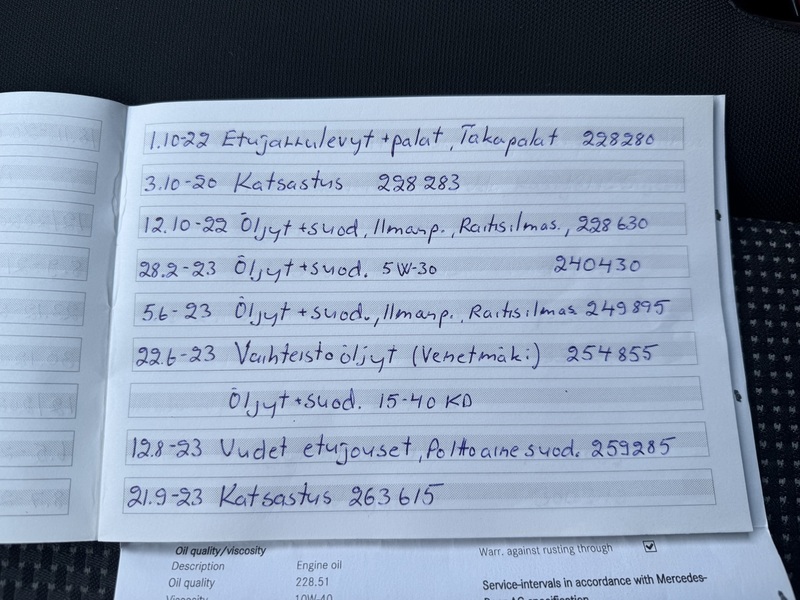 1.10-22 Etujarrulevyt + palat, Takapalat 228280
3.10-20 Katsastus 228 283
12.10-22 Öljyt + suod, Ilmanp., Raitisilmas., 228 630
28.2-23 Öljyt + suod. 5W-30 240430
5.6-23 Öljyt + suod., Ilmanp., Raitisilmas. 249895
22.6-23 Vaihteistoöljyt (Venetmäki) 254855
Öljyt + suod. 15-40 KD
12.8-23 Uudet etujouset, Polttoainesuod. 259285
21.9-23 Katsastus 263615
Oil quality/viscosity
Description Engine oil
Oil quality 228.51
Viscosity 10W-40
Warr. against rusting through
Service-intervals in accordance with Mercedes-